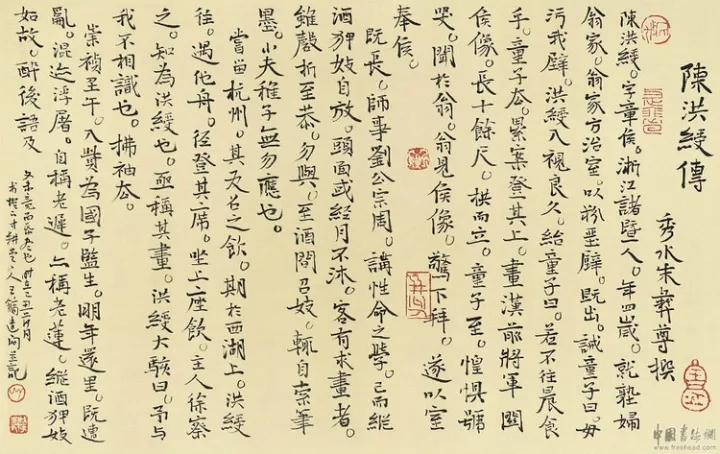 陳洪綬傳
秀水朱彝尊撰
陳洪綬。字章侯。浙江諸暨人。年四歲。就塾婦
翁家。翁家方治室。以粉堊壁。既出。誡童子曰。毋
污我壁。洪綬入良久。紿童子曰。若不往晨食
乎。童子去。累案登其上。畫漢前將軍關
侯像。長十餘尺。拱而立。童子至。惶懼號
哭。聞於翁。翁見侯像。驚下拜。遂以室
奉侯。
既長。師事劉公宗周。講性命之學。已而縱
酒狎妓自放。頭面或經月不沐。客有求畫者。
雖罄折至恭。勿與。至酒間召妓。輒自索筆
墨。小夫稚子無勿應也。
嘗留杭州。其友召之飲。期於西湖上。洪綬
往。遇他舟。徑登其席。坐上座飲。主人徐察
之。知為洪綬也。亟稱其畫。洪綬大駭曰。子與
我不相識也。拂袖去。
崇禎壬午。入貲為國子監生。明年還里。既遭
亂。混迹浮屠。自稱老遲。亦稱老蓮。縱酒狎妓
如故。醉後語及
中國書法網
www.freehead.com